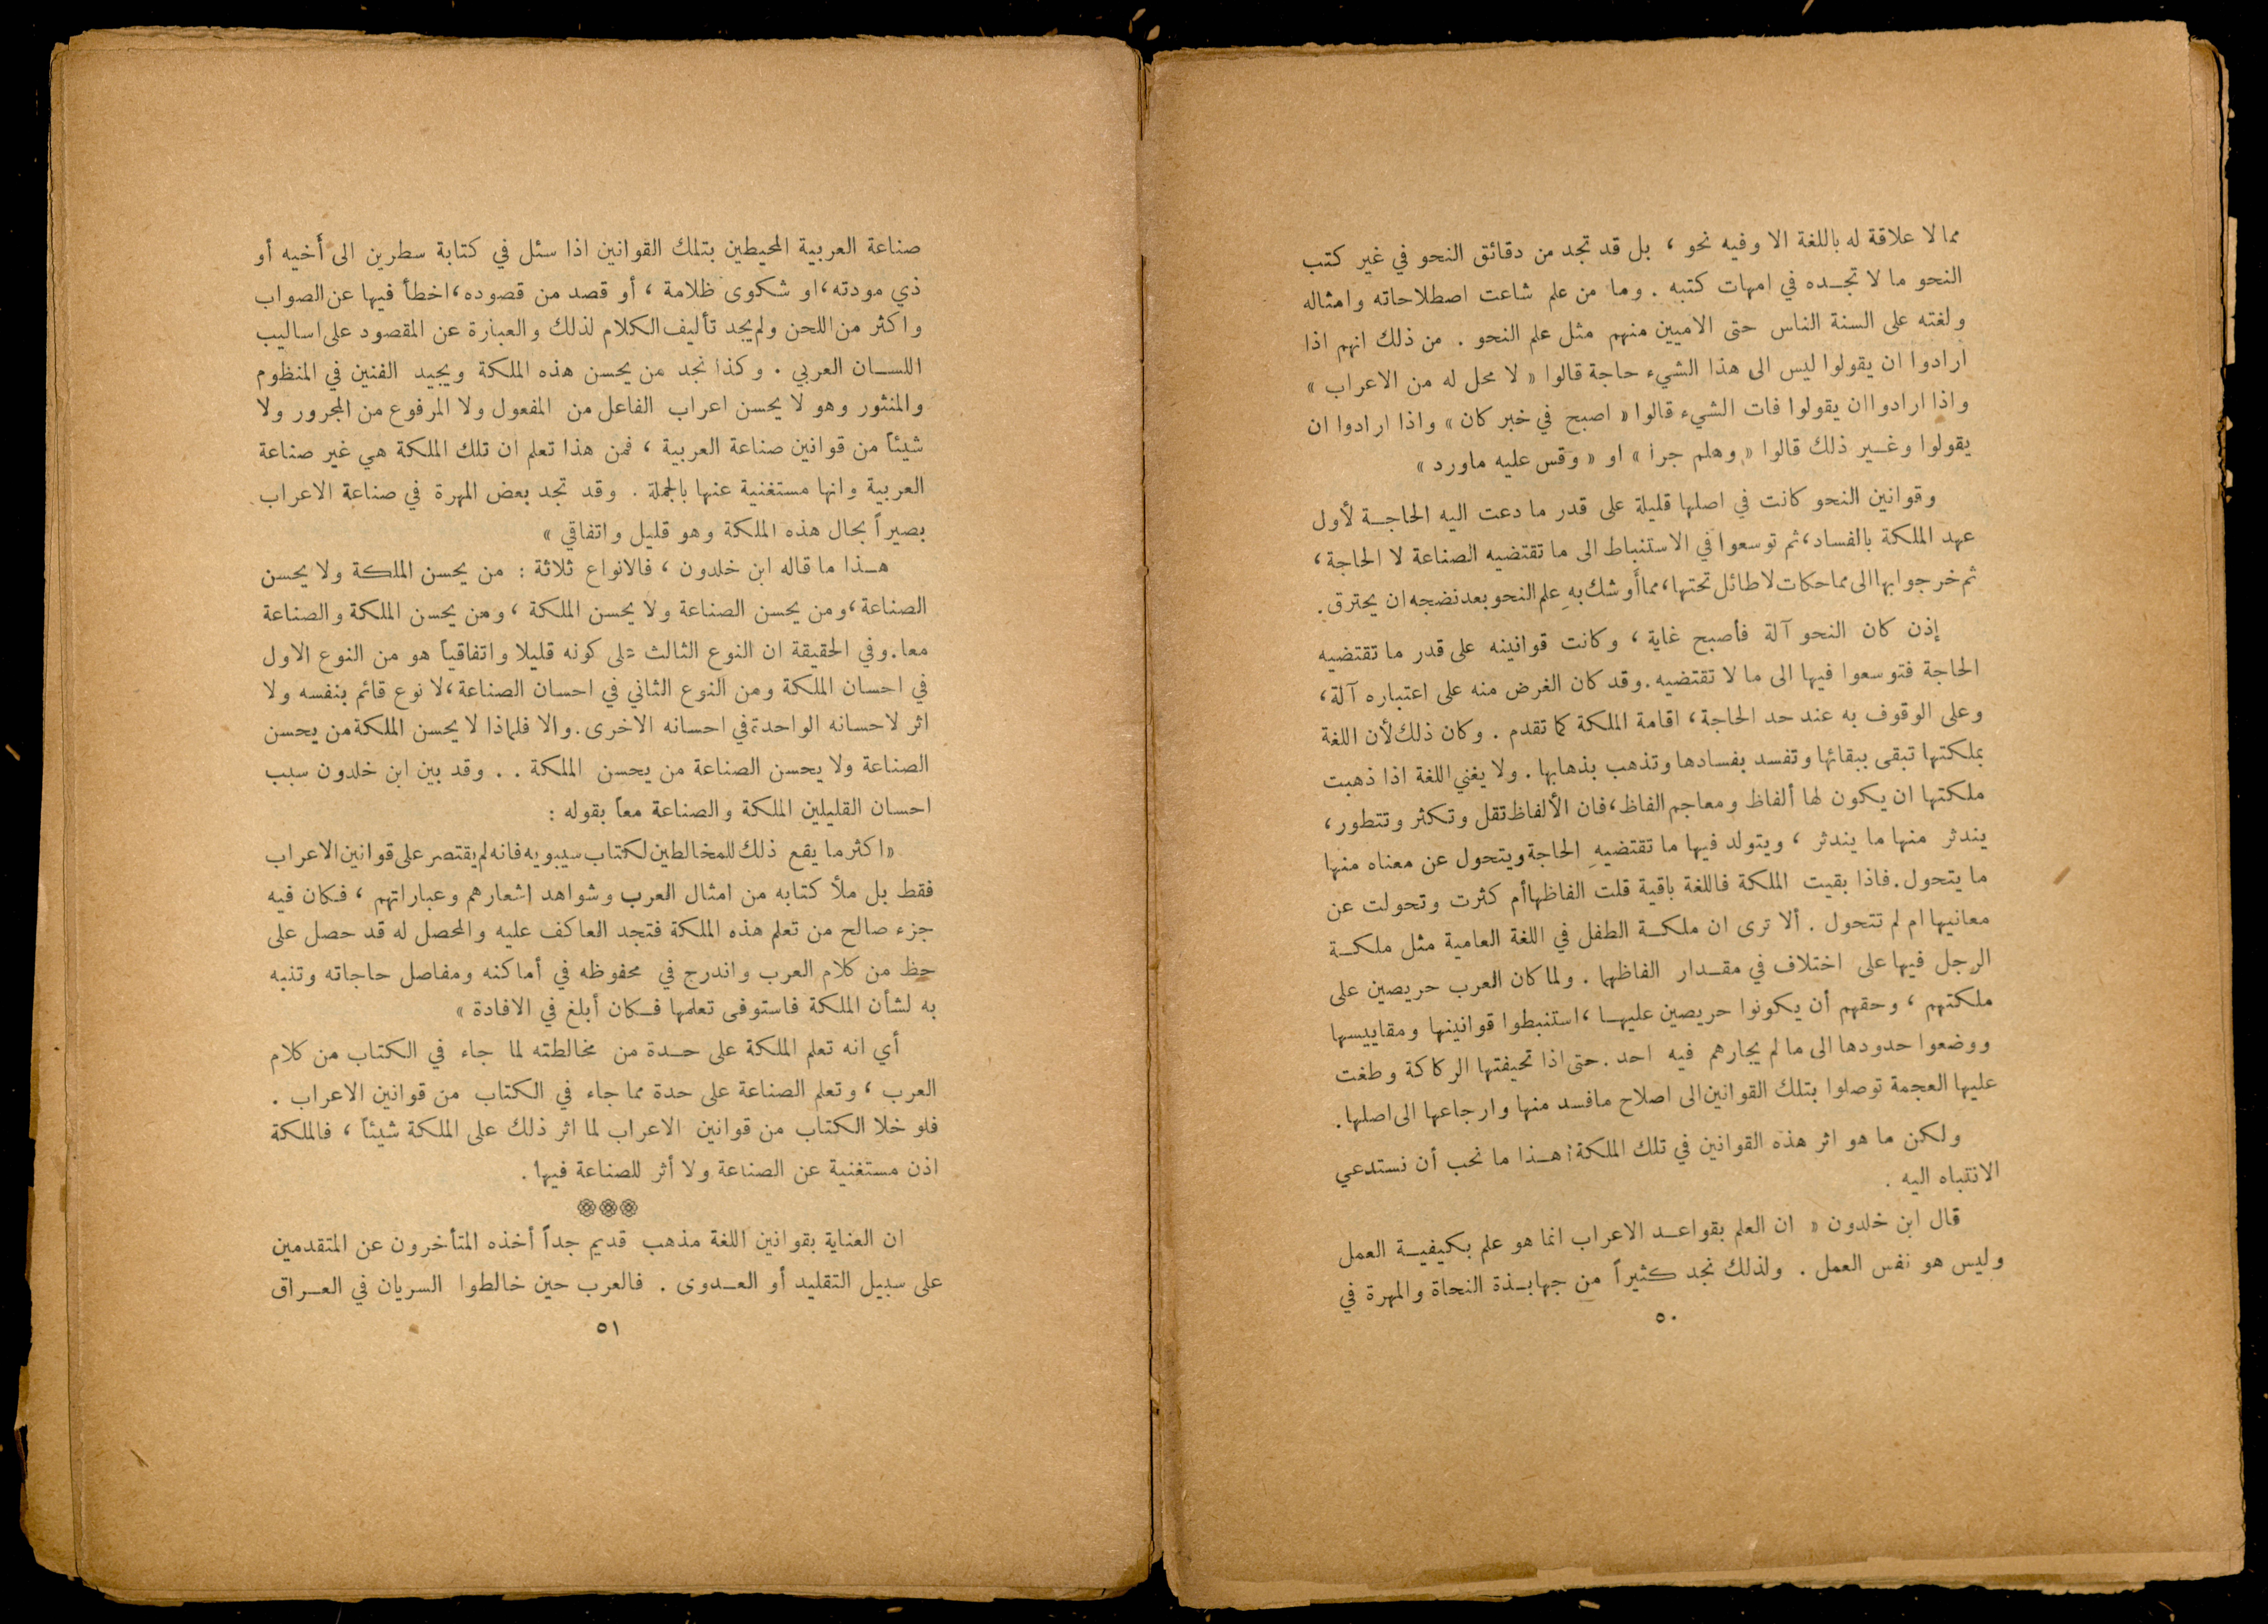 مما لا علاقة له باللغة الا وفيه نحو ، بل قد تجد من دقائق النحو في غير كتب
النحو ما لا تجده في امهات كتبه . وما من علم شاعت اصطلاحاته وامثاله
ولغته على السنة الناس حتى الاميين منهم مثل علم النحو . من ذلك انهم اذا
ارادوا ان يقولوا ليس الى هذا الشيء حاجة قالوا « لا محل له من الاعراب »
واذا ارادوا ان يقولوا فات الشيء قالوا « اصبح في خبر كان » واذا ارادوا ان
يقولوا وغير ذلك قالوا « وهلم جرا » او « وقس عليه ماورد »
وقوانين النحو كانت في اصلها قليلة على قدر ما دعت اليه الحاجة لأول
عهد الملكة بالفساد، ثم توسعوا في الاستنباط الى ما تقتضيه الصناعة لا الحاجة ،
ثم خرجوا بها الى مماحكات لا طائل تحتها، مما أوشك بهِ علم النحو بعد نضجه ان يحترق .
إذن كان النحو آلة فأصبح غاية ، وكانت قوانينه على قدر ما تقتضيه
الحاجة فتوسعوا فيها الى ما لا تقتضيه . وقد كان الغرض منه على اعتباره آلة ،
وعلى الوقوف به عند حد الحاجة ، اقامة الملكة كما تقدم . وكان ذلك لأن اللغة
بملكتها تبقى ببقائها وتفسد بفسادها وتذهب بذهابها . ولا يغني اللغة اذا ذهبت
ملكتها ان يكون لها ألفاظ ومعاجم الفاظ ، فان الألفاظ تقل وتكثر وتتطور ،
يندثر منها ما يندثر ، ويتولد فيها ما تقتضيهِ الحاجة ويتحول عن معناه منها
ما يتحول . فاذا بقيت الملكة فاللغة باقية قلت الفاظها أم كثرت وتحولت عن
معانيها ام لم تتحول . ألا ترى ان ملكة الطفل في اللغة العامية مثل ملكة
الرجل فيها على اختلاف في مقدار الفاظهما . ولما كان العرب حريصين على
ملكتهم ، وحقهم أن يكونوا حريصين عليها ، استنبطوا قوانينها ومقاييسها
ووضعوا حدودها الى ما لم يجارهم فيه احد . حتى اذا تحيفتها الركاكة وطغت
عليها العجمة توصلوا بتلك القوانين الى اصلاح مافسد منها وارجاعها الى اصلها .
ولكن ما هو اثر هذه القوانين في تلك الملكة؟ هذا ما نحب أن نستدعي
الانتباه اليه .
قال ابن خلدون « ان العلم بقواعد الاعراب انما هو علم بكيفية العمل
وليس هو نفس العمل . ولذلك نجد كثيراً من جهابذة النحاة والمهرة في
٥٠
صناعة العربية المحيطين بتلك القوانين اذا سئل في كتابة سطرين الى أخيه أو
ذي مودته ، او شكوى ظلامة ، أو قصد من قصوده ، اخطأ فيها عن الصواب
واكثر من اللحن ولم يجد تأليف الكلام لذلك والعبارة عن المقصود على اساليب
اللسان العربي . وكذا نجد من يحسن هذه الملكة ويجيد الفنين في المنظوم
والمنثور وهو لا يحسن اعراب الفاعل من المفعول ولا المرفوع من المجرور ولا
شيئاً من قوانين صناعة العربية ، فمن هذا تعلم ان تلك الملكة هي غير صناعة
العربية وانها مستغنية عنها بالجملة . وقد تجد بعض المهرة في صناعة الاعراب
بصيراً بحال هذه الملكة وهو قليل واتفاقي »
هذا ما قاله ابن خلدون ، فالانواع ثلاثة : من يحسن الملكة ولا يحسن
الصناعة ، ومن يحسن الصناعة ولا يحسن الملكة ، ومن يحسن الملكة والصناعة
معا . وفي الحقيقة ان النوع الثالث على كونه قليلا واتفاقياً هو من النوع الاول
في احسان الملكة ومن النوع الثاني في احسان الصناعة ، لا نوع قائم بنفسه ولا
اثر لاحسانه الواحدة في احسانه الاخرى . والا فلماذا لا يحسن الملكة من يحسن
الصناعة ولا يحسن الصناعة من يحسن الملكة . . وقد بين ابن خلدون سبب
احسان القليلين الملكة والصناعة معاً بقوله :
« اكثر ما يقع ذلك للمخالطين لكتاب سيبويه فانه لم يقتصر على قوانين الاعراب
فقط بل ملأ كتابه من امثال العرب وشواهد اشعارهم وعباراتهم ، فكان فيه
جزء صالح من تعلم هذه الملكة فتجد العاكف عليه والمحصل له قد حصل على
حظ من كلام العرب واندرج في محفوظه في أماكنه ومفاصل حاجاته وتنبه
به لشأن الملكة فاستوفى تعلمها فكان أبلغ في الافادة »
أي انه تعلم الملكة على حدة من مخالطته لما جاء في الكتاب من كلام
العرب ، وتعلم الصناعة على حدة مما جاء في الكتاب من قوانين الاعراب .
فلو خلا الكتاب من قوانين الاعراب لما اثر ذلك على الملكة شيئاً ، فالملكة
اذن مستغنية عن الصناعة ولا أثر للصناعة فيها .
ان العناية بقوانين اللغة مذهب قديم جداً أخذه المتأخرون عن المتقدمين
على سبيل التقليد أو العدوى . فالعرب حين خالطوا السريان في العراق
٥١